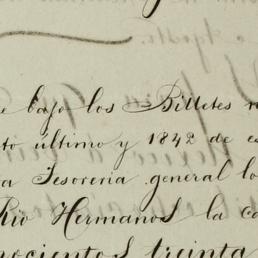 e bajo los Billetes
to último y 1842 de es
a Tesoreria general lo
Rio Hermanos la ca
nocientos treinta